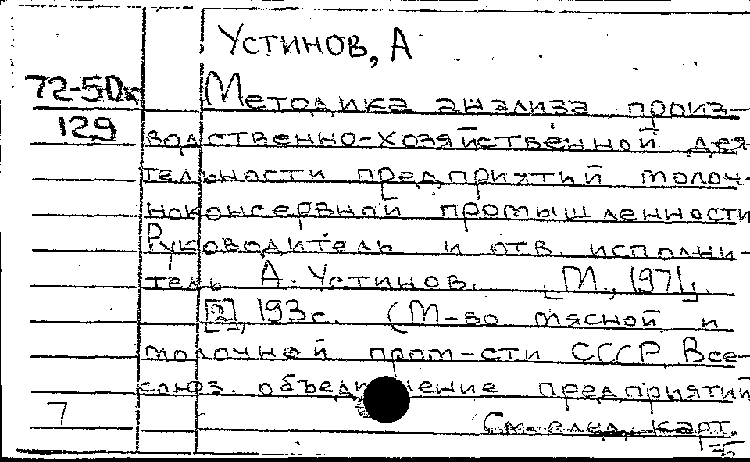 Устинов, А
72-5Dк Методика анализа произ-
129 водственно-хозяйственной дея-
тельности предприятий молоч-
ноконсервной промышленности
Руководитель и отв. исполни-
тель А. Устинов. [М., 1971].
[2], 193с. (М-во мясной и
молочной пром-сти СССР Все-
союз. объединение предприятий
7 См. след. карт.